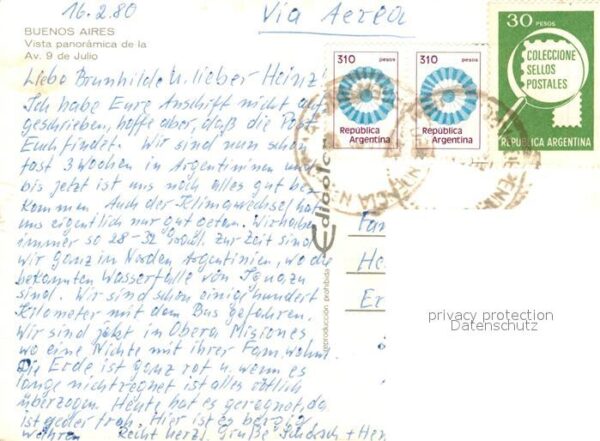 16.2.80
Via Aerea
BUENOS AIRES
Vista panorámica de la
Av. 9 de Julio
310 pesos
República
Argentina
310 pesos
República
Argentina
30 PESOS
COLECCIONE
SELLOS
POSTALES
REPUBLICA ARGENTINA
Liebe Brunhilde u. lieber Heinz!
Ich habe Eure Anschift nicht auf
geschrieben, hoffe aber, daß die Post
Euch findet. Wir sind nun schon
fast 3 Wochen in Argentininen und
bis jetzt ist uns noch alles gut be-
kommen. Auch der Klimawechsel hat
uns eigentlich nur gut getan. Wir haben
immer so 28-32 Grad. Zur Zeit sind
wir ganz im Norden Argentinien, wo die
bekannten Wasserfälle von Iguazu
sind. Wir sind schon einige hundert
Kilometer mit dem Bus gefahren.
Wir sind jetzt in Obera Misiones
wo eine Nichte mit ihrer Fam. wohnt
Die Erde ist ganz rot u. wenn es
lange nicht regnet ist alles rötlich
überzogen. Heute hat es geregnet, da
ist jeder froh. Hier ist es bergig
Recht herzl. Grüße
Edicolor
reproducción prohibida
Fam
He
Er
privacy protection
Datenschutz